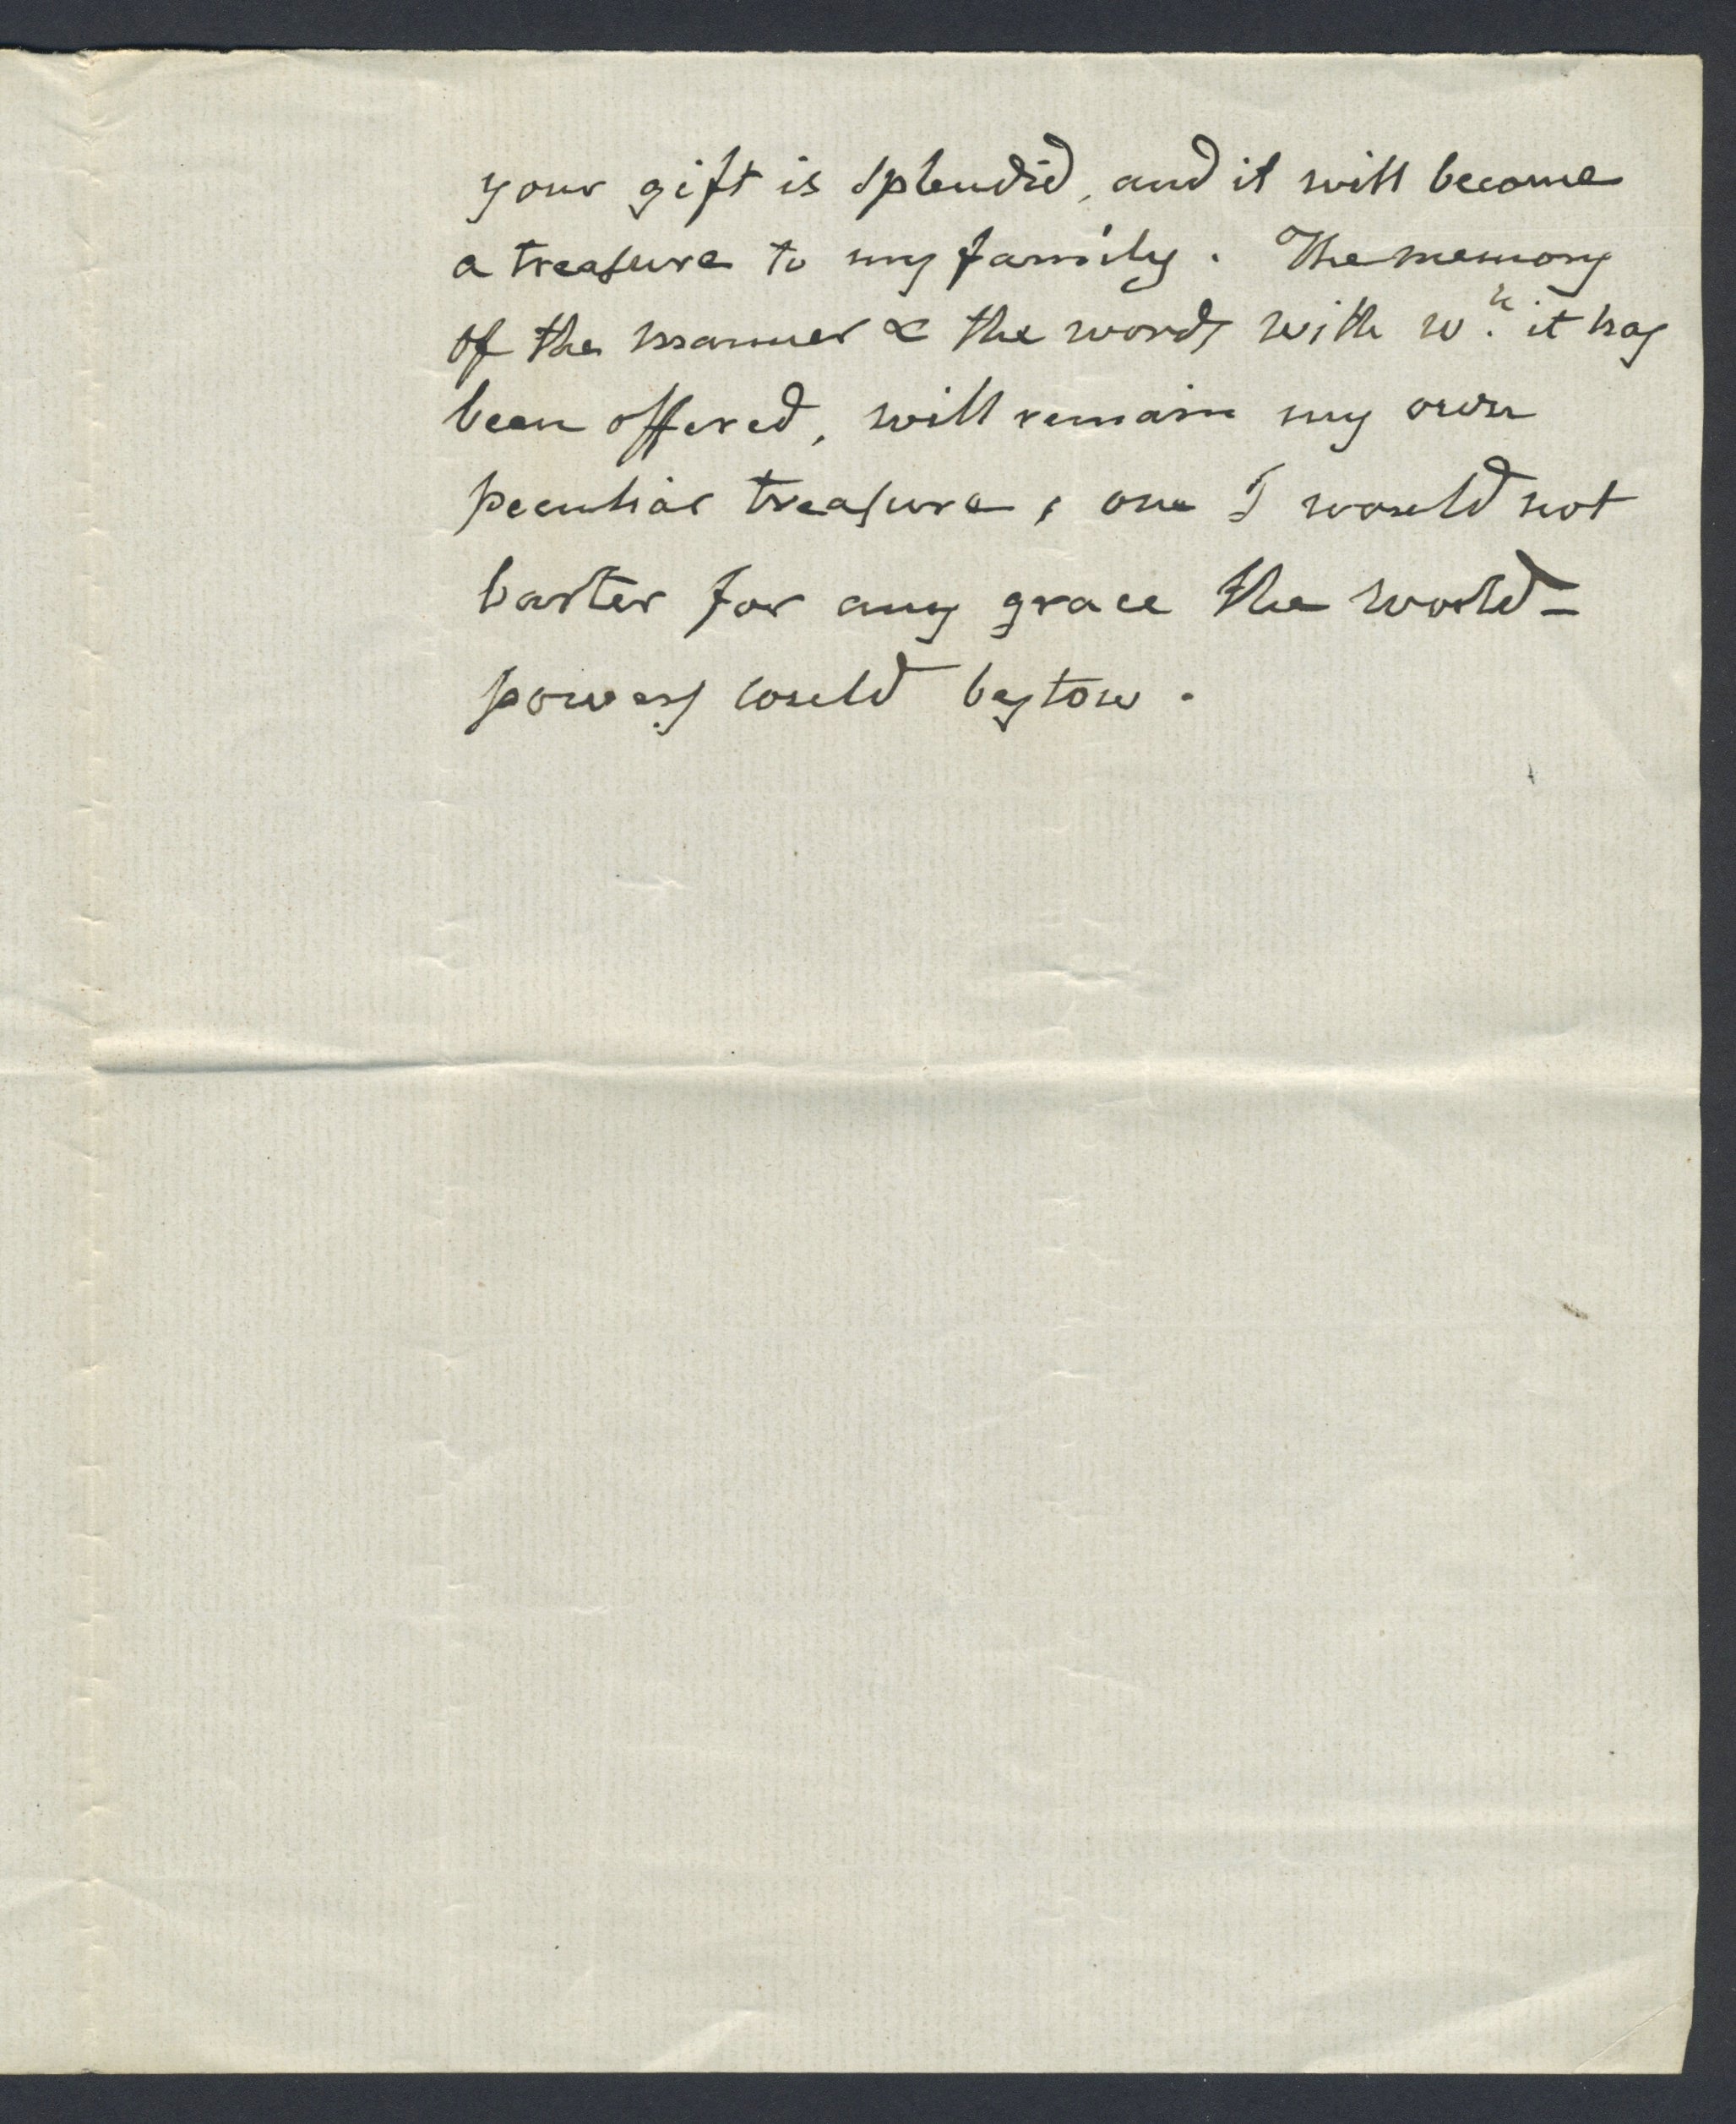 your gift is splendid, and it will become
a treasure to my family. The memory
of the manner & the words with wh. it has
been offered, will remain my own
peculiar treasure; one I would not
barter for any grace the world-
powers could bestow.